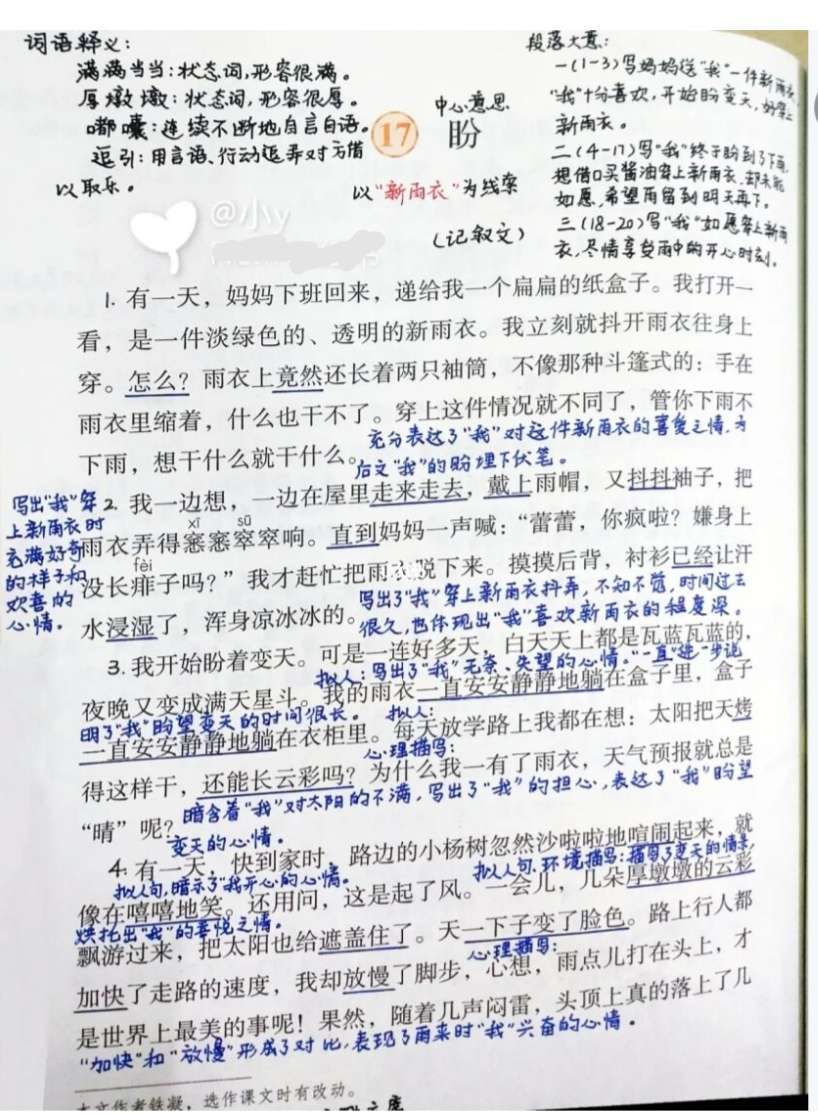 词语释义:
满满当当:状态词,形容很满。
厚墩墩:状态词,形容很厚。
嘟囔:连续不断地自言自语。
逗引:用言语、行动逗弄对方借
以取乐。
@小y
中心意思
17 盼
以“新雨衣”为线索
(记叙文)
段落大意:
一(1-3)写妈妈送“我”一件新雨衣,
“我”十分喜欢,开始盼变天,好穿上
新雨衣。
二(4-17)写“我”终于盼到了下雨,
想借口买酱油穿上新雨衣,却未能
如愿,希望雨留到明天再下。
三(18-20)写“我”如愿穿上新雨
衣,尽情享受雨中的开心时刻。
1. 有一天,妈妈下班回来,递给我一个扁扁的纸盒子。我打开一
看,是一件淡绿色的、透明的新雨衣。我立刻就抖开雨衣往身上
穿。怎么?雨衣上竟然还长着两只袖筒,不像那种斗篷式的:手在
雨衣里缩着,什么也干不了。穿上这件情况就不同了,管你下雨不
充分表达了“我”对这件新雨衣的喜爱之情,为
下雨,想干什么就干什么。
后文“我”的盼埋下伏笔。
写出“我”穿
上新雨衣时
充满好奇
的样子和
欢喜的
心情。
2. 我一边想,一边在屋里走来走去,戴上雨帽,又抖抖袖子,把
xī sū
雨衣弄得窸窸窣窣响。直到妈妈一声喊:“蕾蕾,你疯啦?嫌身上
fèi
没长痱子吗?”我才赶忙把雨衣脱下来。摸摸后背,衬衫已经让汗
水浸湿了,浑身凉冰冰的。
写出了“我”穿上新雨衣抖弄,不知不觉,时间过去
很久,也体现出“我”喜欢新雨衣的程度深。
3. 我开始盼着变天。可是一连好多天,白天天上都是瓦蓝瓦蓝的,
拟人:写出了“我”无奈、失望的心情。“一直”进一步说
夜晚又变成满天星斗。我的雨衣一直安安静静地躺在盒子里,盒子
明了“我”盼望变天的时间很长。 拟人:
一直安安静静地躺在衣柜里。每天放学路上我都在想:太阳把天烤
心理描写:
得这样干,还能长云彩吗?为什么我一有了雨衣,天气预报就总是
暗含着“我”对太阳的不满,写出了“我”的担心,表达了“我”盼望
“晴”呢?
变天的心情。
4. 有一天,快到家时,路边的小杨树忽然沙啦啦地喧闹起来,就
拟人句,暗示了“我”开心的心情。 拟人句,环境描写:描写了变天的情景,
像在嘻嘻地笑。还用问,这是起了风。一会儿,几朵厚墩墩的云彩
烘托出“我”的喜悦之情。
飘游过来,把太阳也给遮盖住了。天一下子变了脸色。路上行人都
心理描写:
加快了走路的速度,我却放慢了脚步,心想,雨点儿打在头上,才
是世界上最美的事呢!果然,随着几声闷雷,头顶上真的落上了几
“加快”和“放慢”形成了对比,表现了雨来时“我”兴奋的心情。
本文作者铁凝,选作课文时有改动。